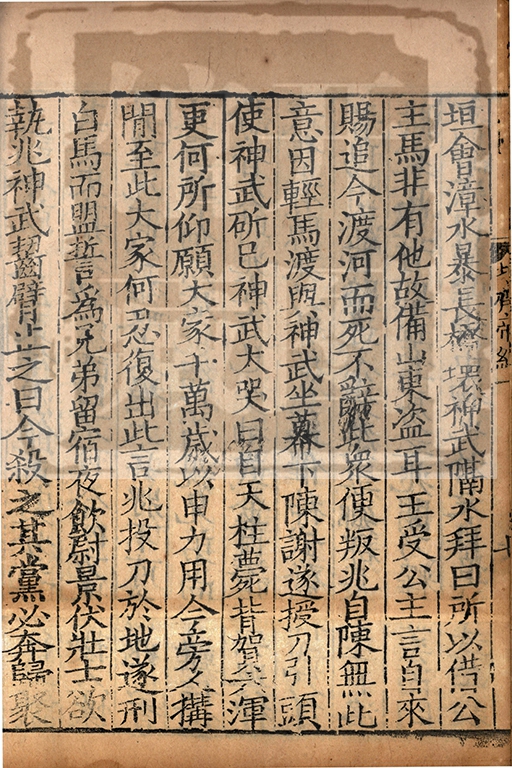 垣會漳水暴長橋壞神武隔水拜曰所以借公
主馬非有他故備山東盗耳王受公主言自來
賜追今渡河而死不辭此衆便叛兆自陳無此
意因輕馬渡與神武坐幕下陳謝遂授刀引頭
使神武斫己神武大哭曰自天柱薨背賀六渾
更何所仰願大家千萬歳以申力用今旁人搆
閒至此大家何忍復出此言兆投刀於地遂刑
白馬而盟誓爲兄弟留宿夜飲尉景伏壯士欲
執兆神武齧臂止之曰今殺之其黨必奔歸聚
齊帝紀一